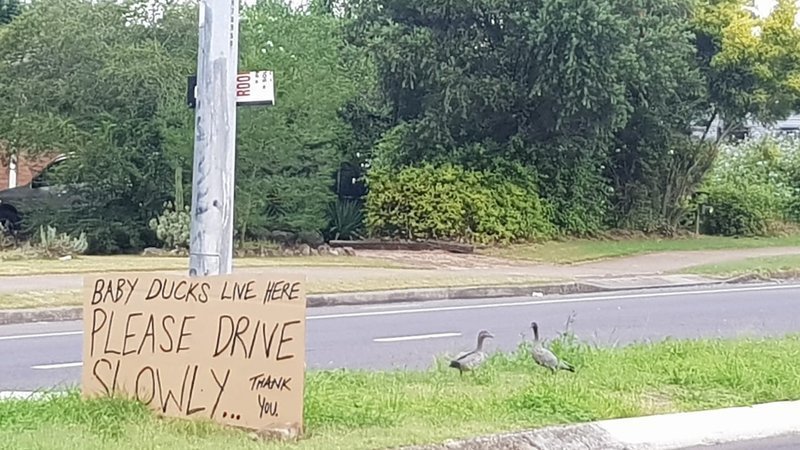 ROO
BABY DUCKS LIVE HERE
PLEASE DRIVE
SLOWLY... THANK
YOU.